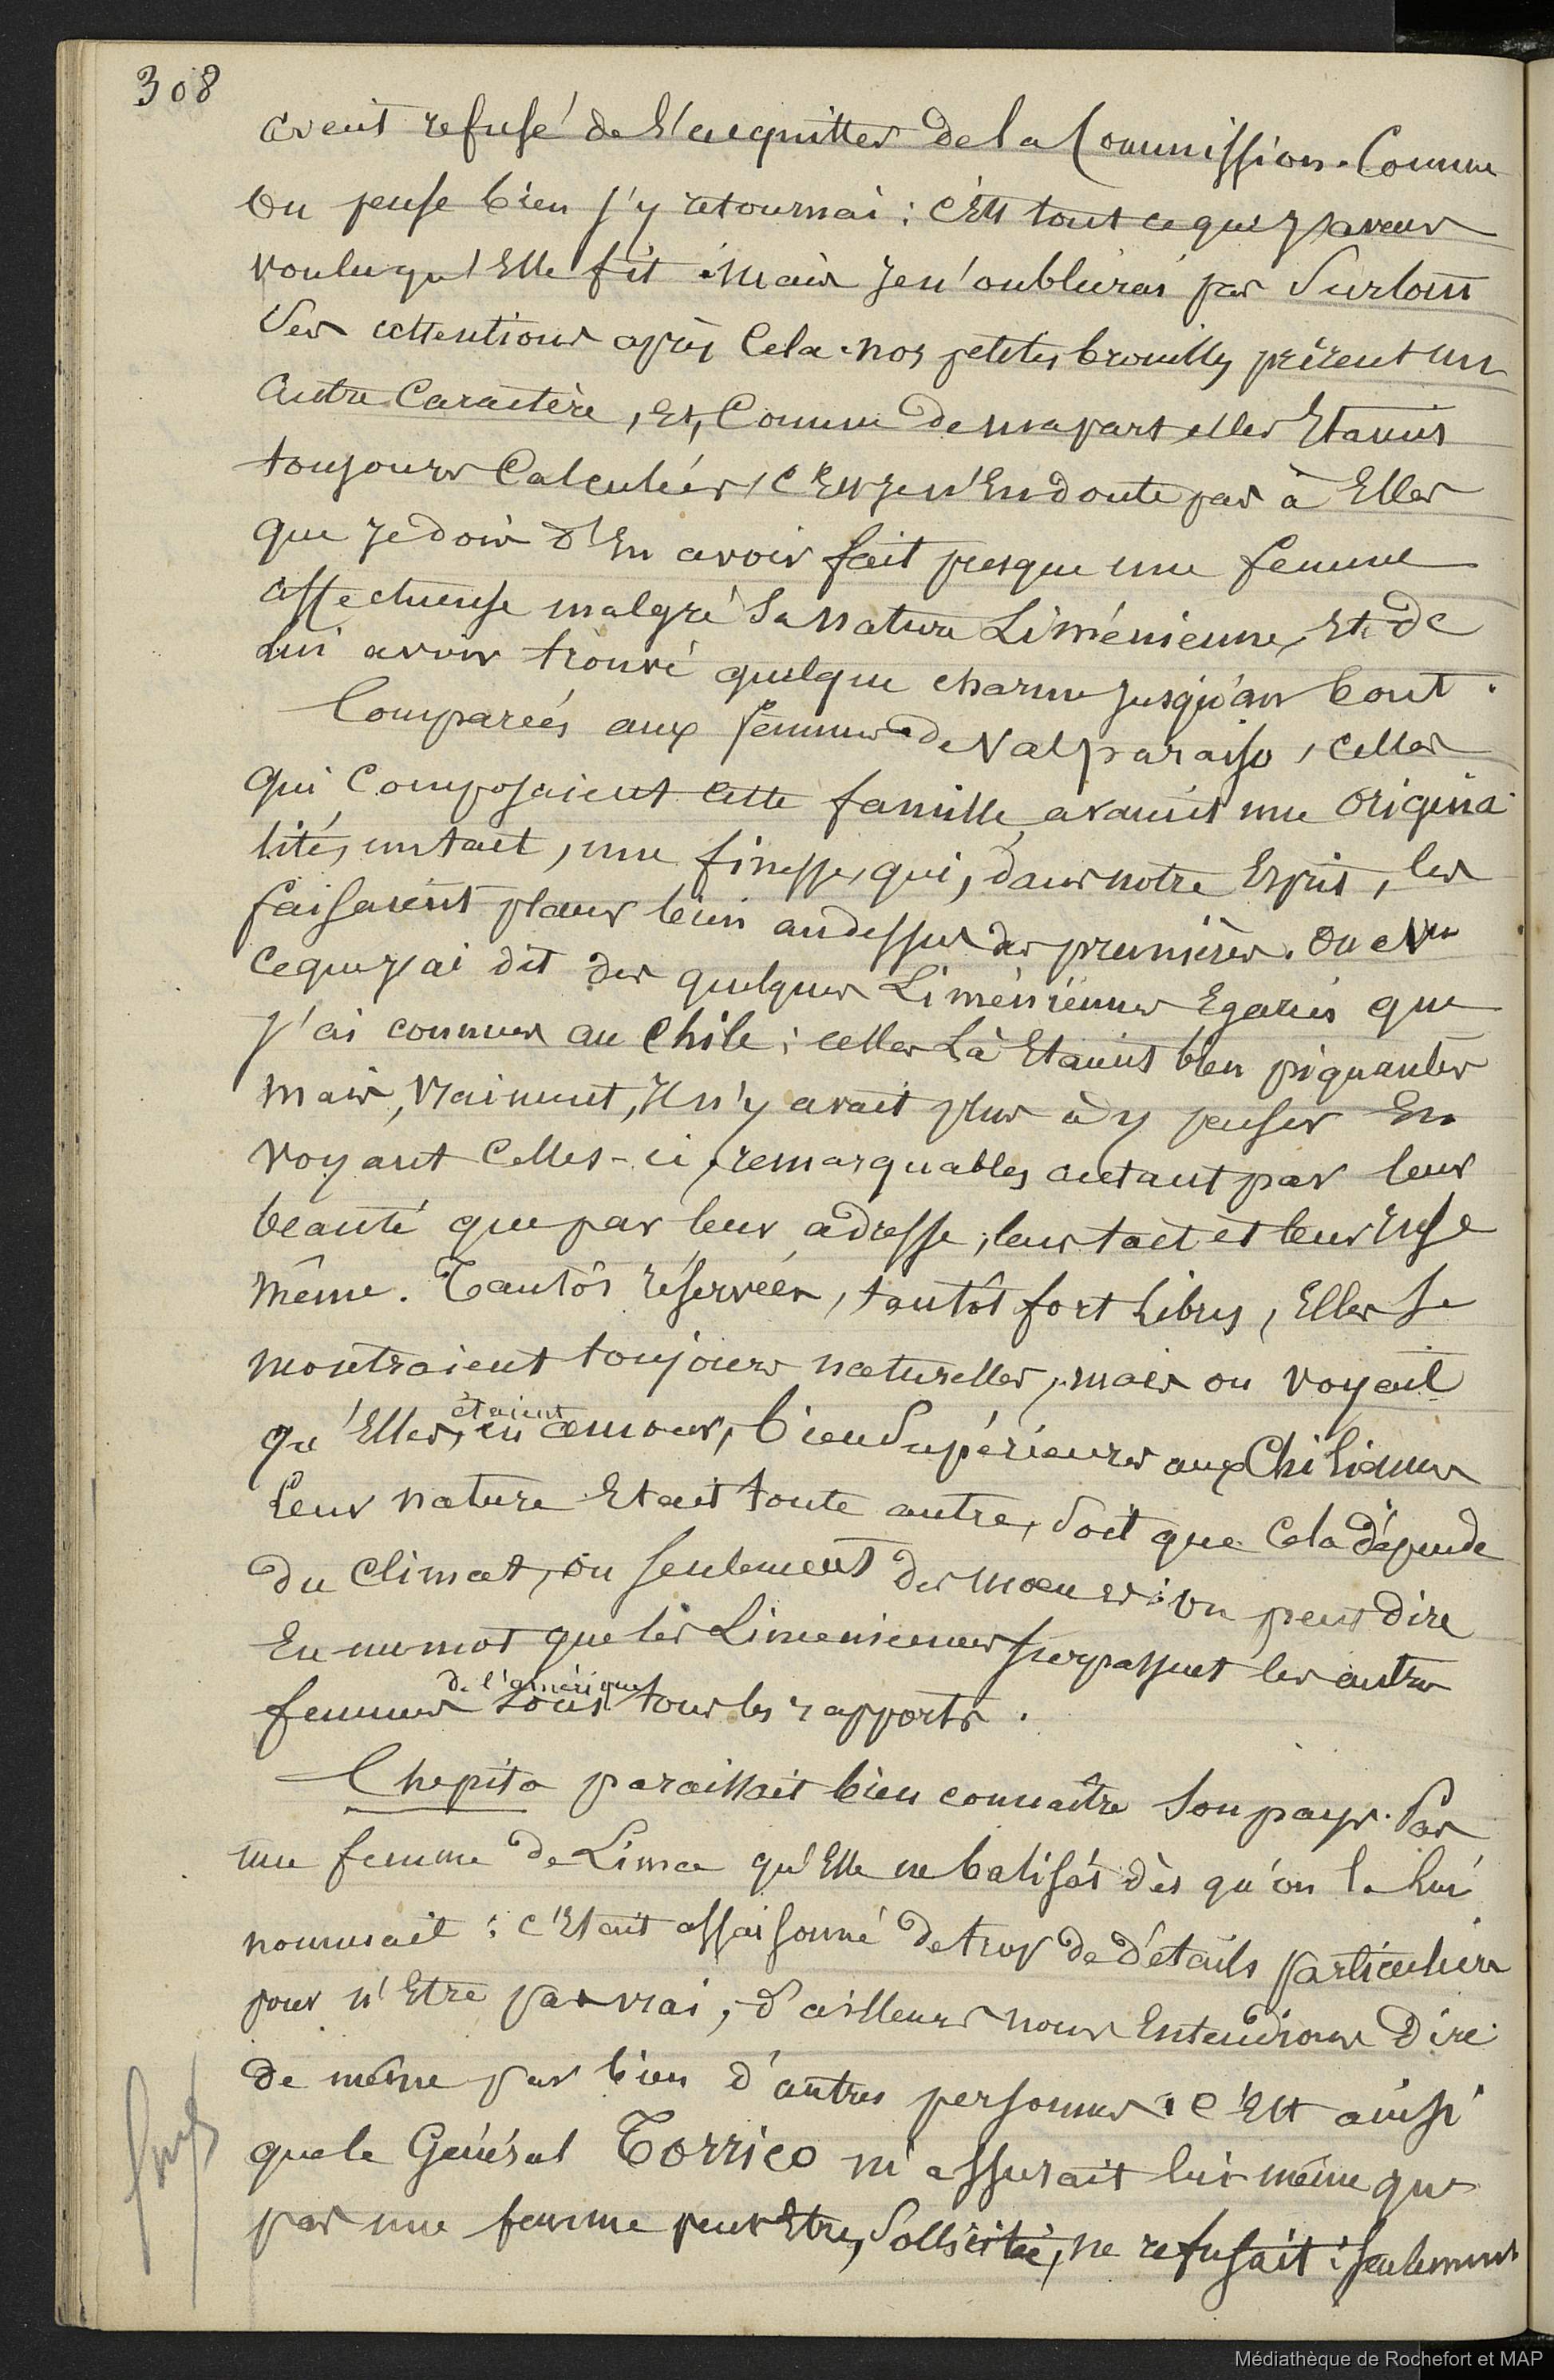 308
avait refusé de s'acquitter de la Commission. Comme
on pense bien j'y retournai : c'Est tout ce que j'avais
voulu qu'Elle fit. Mais je n'oublierai pas surtout
ses attentions après Cela. nos petites brouilles prirent un
autre Caractère, Et, Comme de ma part elles Etaient
toujours Calculées, c'Est je n'En doute pas à Elles
que je dois d'En avoir fait presque une femme
affectueuse malgré sa nature Liménienne, Et de
lui avoir trouvé quelque charme jusqu'au bout.
Comparées aux femmes de Valparaiso, celles
qui Composaient cette famille avaient une origina
lité, un tact, une finesse, qui, dans notre Esprit, les
faisaient placer bien audessus des premières. On a vu
ce que j'ai dit des quelques Liméniennes Egarées que
j'ai connues au Chili : celles là Etaient bien piquantes
mais, vraiment, Il n'y avait plus à y penser En
voyant Celles-ci, remarquables autant par leur
beauté que par leur adresse, leur tact et leur ruse
même. Tantôt réservées, tantôt fort libres, Elles se
montraient toujours naturelles, mais on voyait
qu'Elles étaient, en amour, bien Supérieures aux Chiliennes
Leur nature Etait toute autre, soit que Cela dépende
du Climat, ou seulement des moeurs : on peut dire
En un mot que les Liméniennes surpassent les autres
femmes de l'amérique sous tous les rapports.
Chepita paraissait bien connaître son pays. Pas
une femme de Lima qu'Elle ne batisât dès qu'on la lui
nommait : c'Etait assaisonné de trop de détails particuliers
pour n'Etre pas vrai, d'ailleurs nous Entendions dire
de même par bien d'autres personnes : c'Est ainsi
que le Général Torrico m'assurait lui-même que
pas une femme peut Etre, Sollicitée, ne refusait : seulement